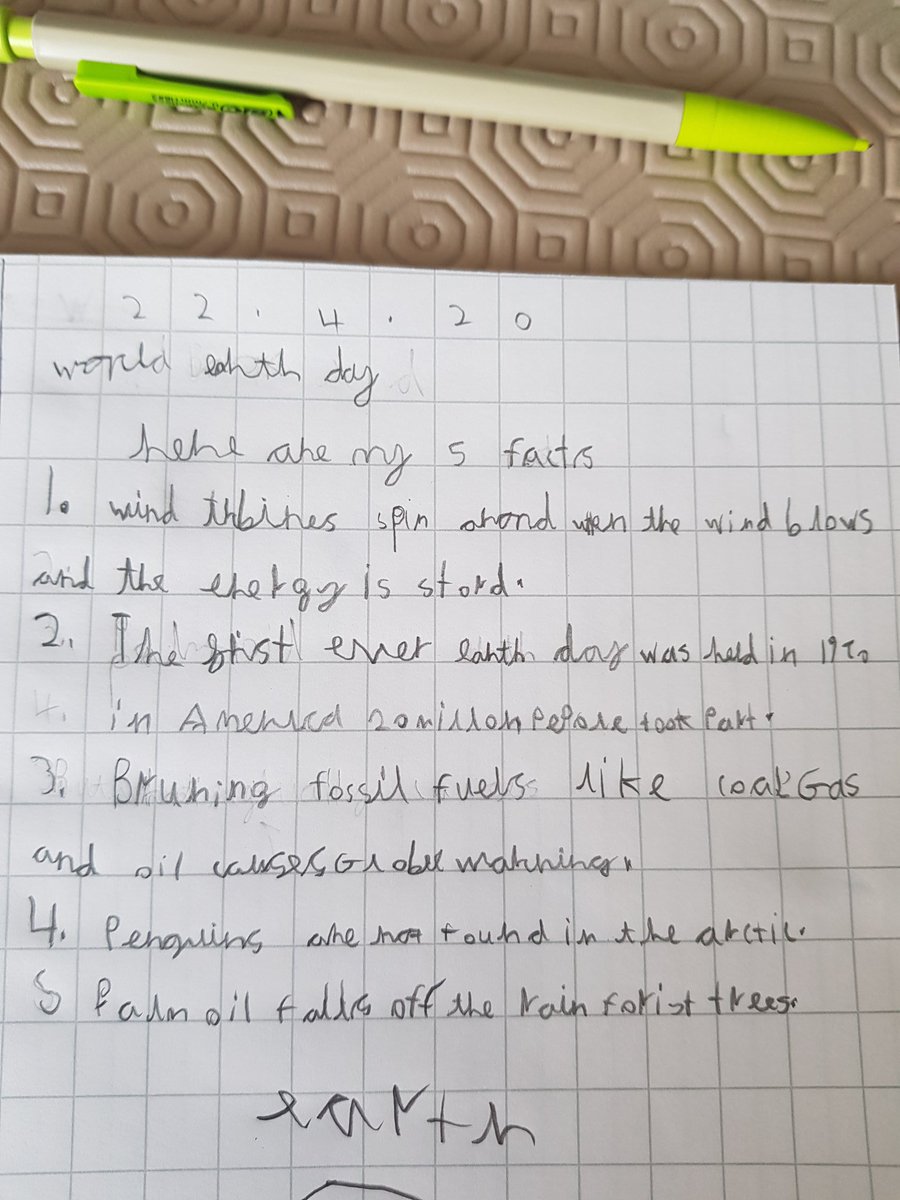 22.4.20
world earth day
here are my 5 facts
1. wind trbines spin arond when the wind blows
and the energy is stord.
2. The first ever earth day was held in 1970
in America 20 millon pepole took part.
3. Bruning fossil fuels like coal Gas
and oil causes Globel warming.
4. Penguins are not found in the arctic.
5 Palm oil falls off the rain forist trees.
earth